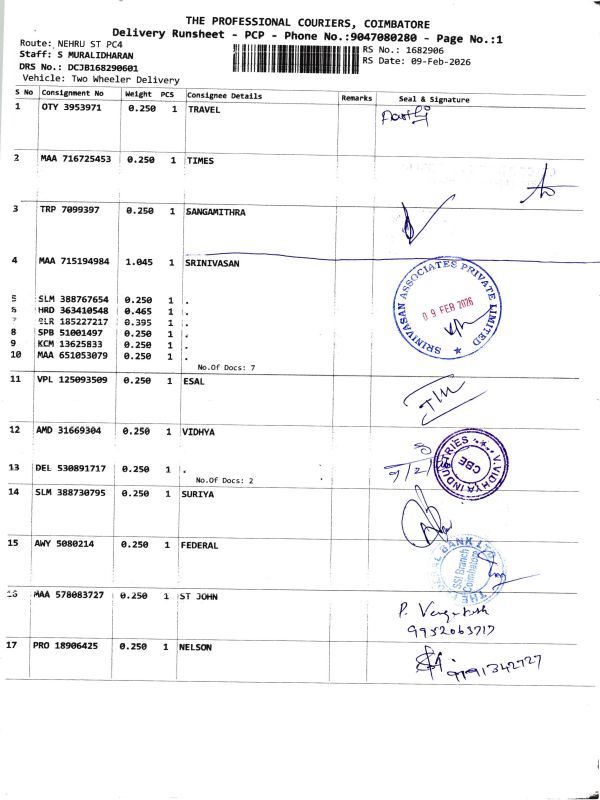 THE PROFESSIONAL COURIERS, COIMBATORE
Delivery Runsheet - PCP - Phone No.:9047080280 - Page No.:1
Route: NEHRU ST PC4
Staff: S MURALIDHARAN
DRS No.: DCJB168290601
Vehicle: Two Wheeler Delivery
RS No.: 1682906
RS Date: 09-Feb-2026
S No Consignment No Weight PCS Consignee Details Remarks Seal & Signature
1 OTY 3953971 0.250 1 TRAVEL
2 MAA 716725453 0.250 1 TIMES
3 TRP 7099397 0.250 1 SANGAMITHRA
4 MAA 715194984 1.045 1 SRINIVASAN
SRINIVASAN ASSOCIATES PRIVATE LIMITED
09 FEB 2026
5 SLM 388767654 0.250 1 .
6 HRD 363410548 0.465 1 .
7 BLR 185227217 0.395 1 .
8 SPB 51001497 0.250 1 .
9 KCM 13625833 0.250 1 .
10 MAA 651053079 0.250 1 .
No.Of Docs: 7
11 VPL 125093509 0.250 1 ESAL
12 AMD 31669304 0.250 1 VIDHYA
V.VIDHYA INDUSTRIES
CBE
13 DEL 530891717 0.250 1 .
No.Of Docs: 2
14 SLM 388730795 0.250 1 SURIYA
15 AWY 5080214 0.250 1 FEDERAL
THE FEDERAL BANK LTD
SSI Branch
Coimbatore
16 MAA 578083727 0.250 1 ST JOHN
P. Venkatesh
9952063717
17 PRO 18906425 0.250 1 NELSON
9791342727